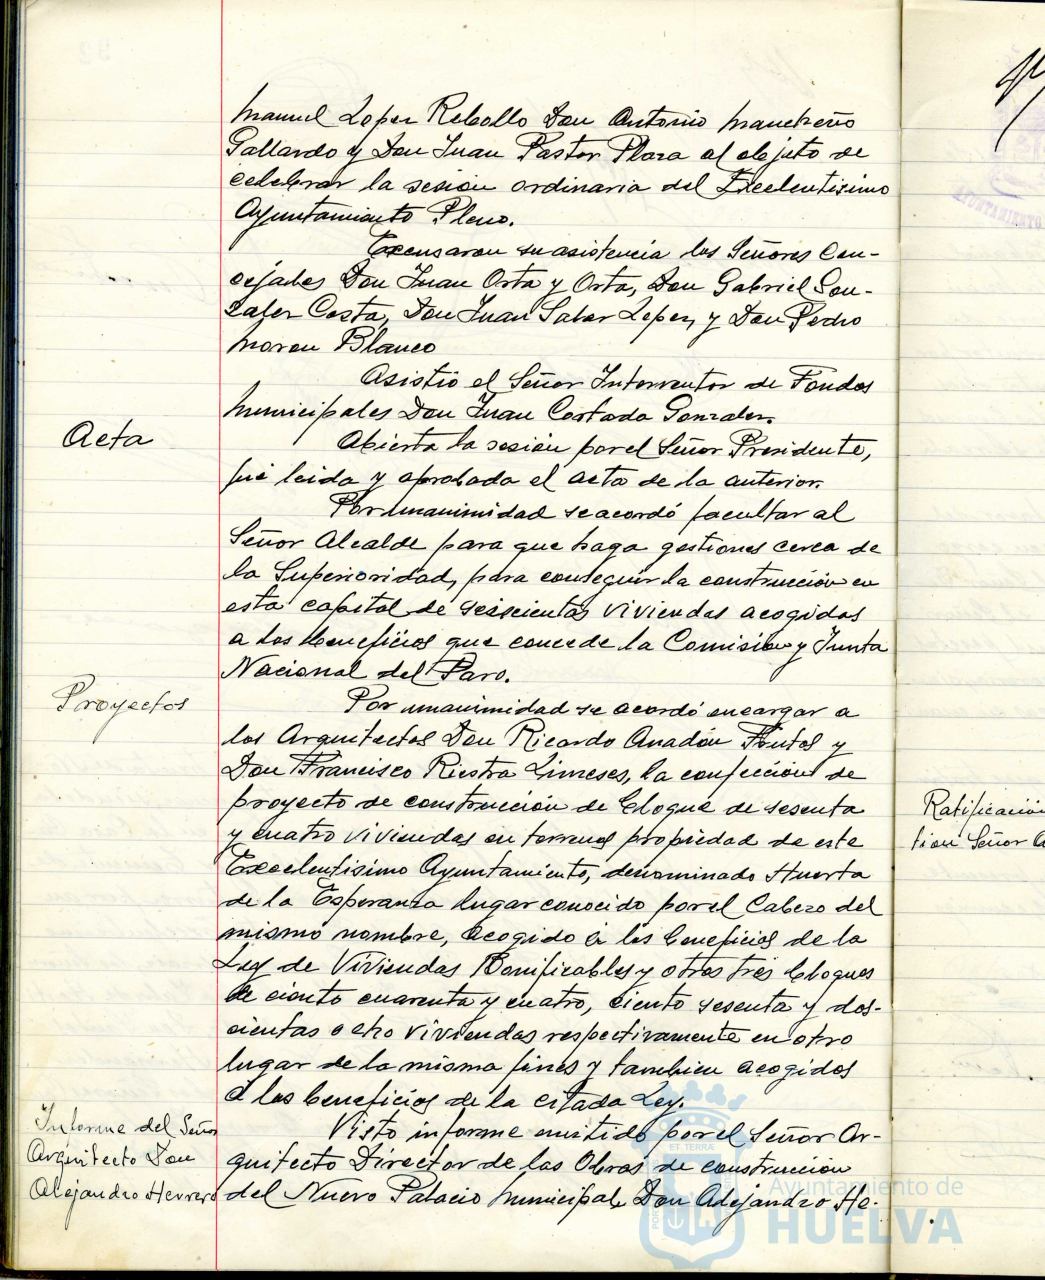 Manuel Lopez Rebollo Don Antonio Mancheño
Gallardo y Don Juan Pastor Plaza al objeto de
celebrar la sesión ordinaria del Excelentisimo
Ayuntamiento Pleno.
Excusaron su asistencia los Señores Con-
cejales Don Juan Orta y Orta, Don Gabriel Gon-
zalez Costa, Don Juan Saber Lopez, y Don Pedro
Moron Blanco
Asistió el Señor Interventor de Fondos
Municipales Don Juan Cortada Gonzalez.
Acta
Abierta la sesión por el Señor Presidente,
fué leida y aprobada el acta de la anterior.
Por unanimidad se acordó facultar al
Señor Alcalde para que haga gestiones cerca de
la Superioridad, para conseguir la construcción en
esta capital de seiscientas viviendas acogidas
a los beneficios que concede la Comisión y Junta
Nacional del Paro.
Proyectos
Por unanimidad se acordó encargar a
los Arquitectos Don Ricardo Anadón Frutos y
Don Francisco Riestra Limeses, la confección de
proyecto de construcción de bloque de sesenta
y cuatro viviendas en terrenos propiedad de este
Excelentisimo Ayuntamiento, denominado Huerta
de la Esperanza lugar conocido por el Cabezo del
mismo nombre, acogido a los beneficios de la
Ley de Viviendas Bonificables y otros tres bloques
de ciento cuarenta y cuatro, ciento sesenta y dos-
cientas ocho viviendas respectivamente en otro
lugar de la misma finca y tambien acogidos
a los beneficios de la citada Ley.
Informe del Señor
Arquitecto Don
Alejandro Herrero
Visto informe emitido por el Señor Ar-
quitecto Director de las Obras de construcción
del Nuevo Palacio Municipal, Don Alejandro He-
Ratificación
Señor
AYUNTAMIENTO
Ayuntamiento de
HUELVA